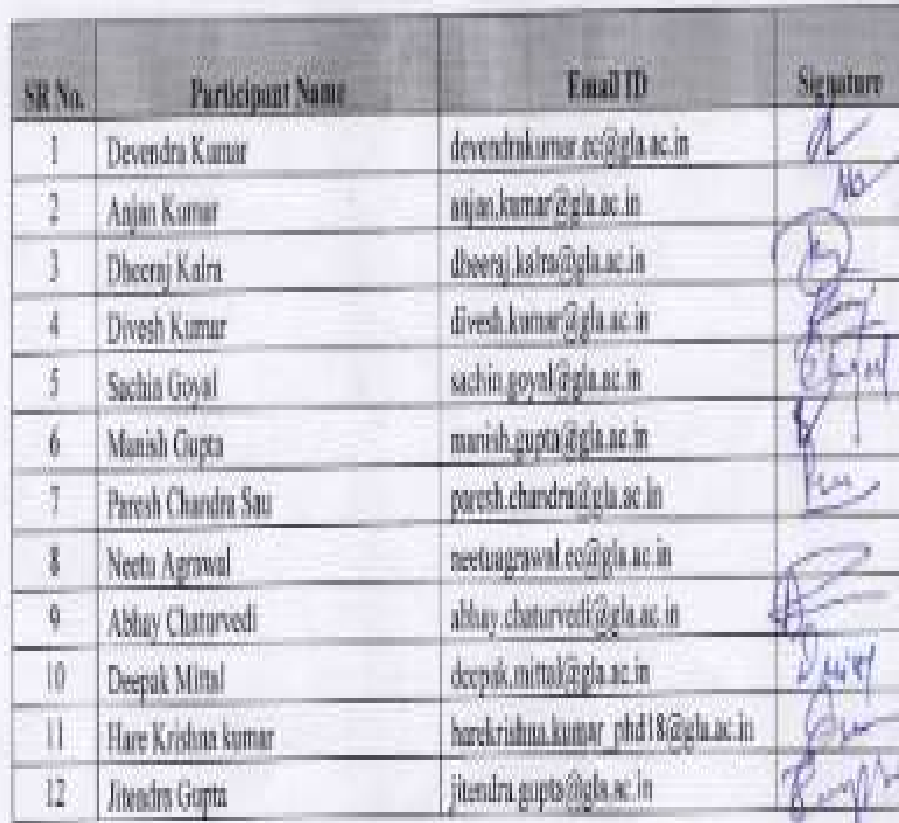 SR No. Participant Name Email ID Signature
1 Devendra Kumar devendrakumar.ec@gla.ac.in
2 Anjan Kumar anjan.kumar@gla.ac.in
3 Dheeraj Kalra dheeraj.kalra@gla.ac.in
4 Divesh Kumar divesh.kumar@gla.ac.in
5 Sachin Goyal sachin.goyal@gla.ac.in
6 Manish Gupta manish.gupta@gla.ac.in
7 Paresh Chandra Sau paresh.chandra@gla.ac.in
8 Neetu Agrawal neetuagrawal.ec@gla.ac.in
9 Abhay Chaturvedi abhay.chaturvedi@gla.ac.in
10 Deepak Mittal deepak.mittal@gla.ac.in
11 Hare Krishna kumar harekrishna.kumar_phd18@gla.ac.in
12 Jitendra Gupta jitendra.gupta@gla.ac.in